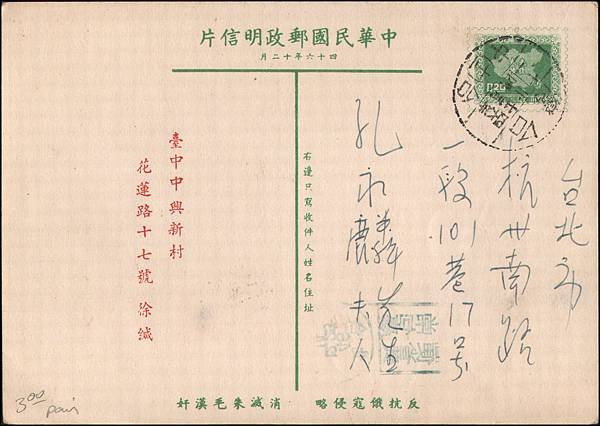 中華民國郵政明信片
四十六年十二月
0.20
台北市
杭州南路
一段101巷17号
孔永麟先生夫人
右邊只寫收件人姓名住址
臺中中興新村
花蓮路十七號 徐緘
反抗俄寇侵略 消滅朱毛漢奸
3.00
pair